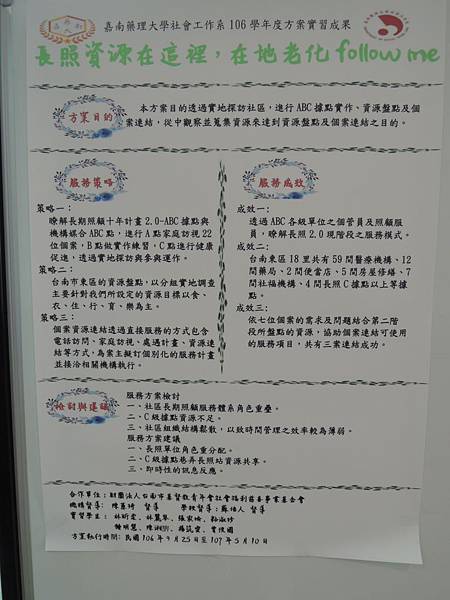 嘉南藥理大學社會工作系106學年度方案實習成果
長照資源在這裡,在地老化follow me
方案目的
本方案目的透過實地探訪社區,進行ABC據點實作、資源盤點及個
案連結,從中觀察並蒐集資源來達到資源盤點及個案連結之目的。
服務策略
策略一:
瞭解長期照顧十年計畫2.0-ABC據點與
機構媒合ABC點,進行A點家庭訪視22
位個案,B點做實作練習,C點進行健康
促進,透過實地探訪與參與運作。
策略二:
台南市東區的資源盤點,以分組實地調查
主要針對我們所設定的資源目標以食、
衣、住、行、育、樂為主。
策略三:
個案資源連結透過直接服務的方式包含
電話訪問、家庭訪視、處遇計畫、資源連
結等方式,為案主擬訂個別化的服務計畫
並接洽相關機構執行。
服務成效
成效一:
透過ABC各級單位之個管員及照顧服
員,瞭解長照2.0現階段之服務模式。
成效二:
台南東區18里共有59間醫療機構、12
間藥局、2間便當店、5間房屋修繕、7
間社福機構、4間長照C據點以上等據
點。
成效三:
依七位個案的需求及問題結合第二階
段所盤點的資源,協助個案連結可使用
的服務項目,共有三案連結成功。
檢討與建議
服務方案檢討
一、社區長期照顧服務體系角色重疊。
二、C級據點資源不足。
三、社區組織結構鬆散,以致時間管理之效率較為薄弱。
服務方案建議
一、長照單位角色重分配。
二、C級據點巷弄長照站資源共享。
三、即時性的訊息反應。
合作單位:財團法人台南市基督教青年會社會福利慈善事業基金會
機構督導:陳
督導 學校督導:蘇
督導
實習學生:林
方案執行時間:民國106年9月25日至107年5月10日